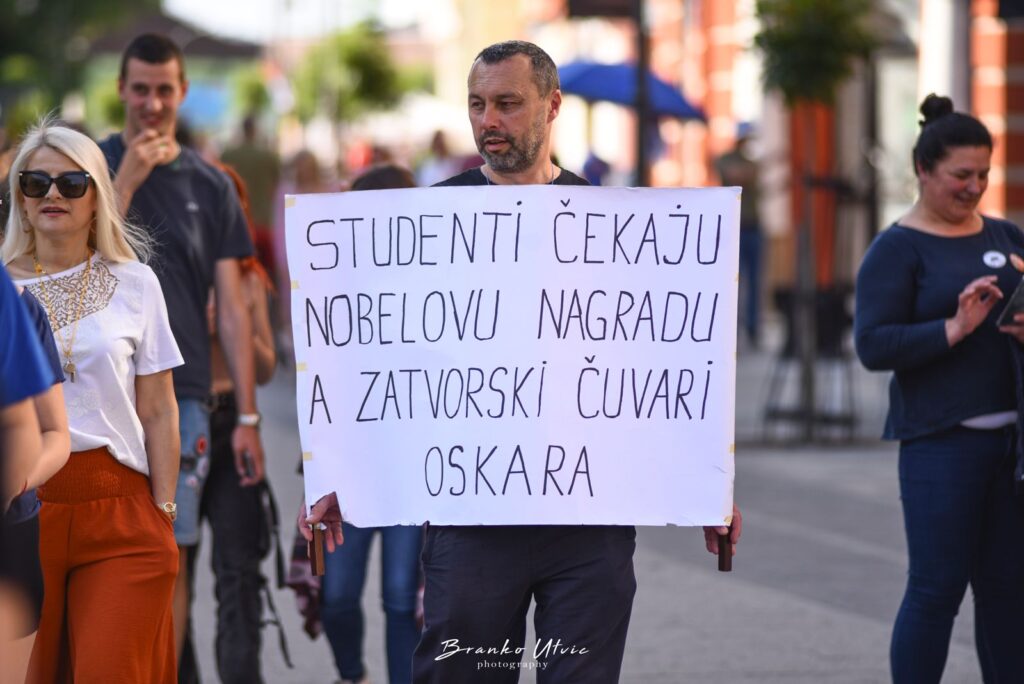 STUDENTI ČEKAJU
NOBELOVU NAGRADU
A ZATVORSKI ČUVARI
OSKARA
Branko Utvic
photography